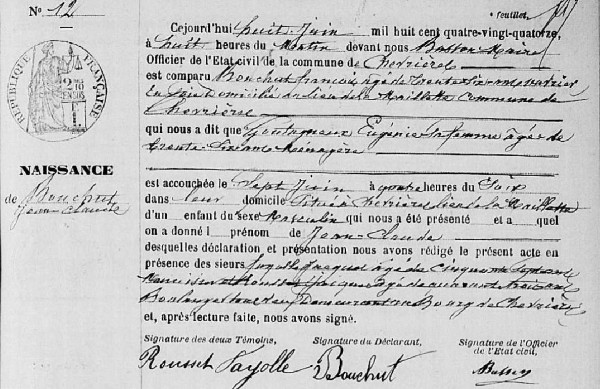 N° 12
feuillet.
Cejourd'hui huit Juin mil huit cent quatre-vingt-quatorze,
à huit heures du Matin devant nous Maire
Officier de l'Etat civil de la commune de Chevrières
est comparu Bouchut françois agé de trente six ans ouvrier
en soie domicilié au lieu de la commune de
Chevrières
qui nous a dit que Eugénie sa femme âgée de
trente six ans Ménagère
RÉPUBLIQUE FRANÇAISE
NAISSANCE
de Bouchut
Jean-Claude
est accouchée le Sept Juin à quatre heures du Soir
dans leur domicile Situé à Chevrières lieu de la
d'un enfant du sexe Masculin qui nous a été présenté et a quel
on a donné l prénom de Jean-Claude
desquelles déclaration et présentation nous avons rédigé le présent acte en
présence des sieurs Fayolle Jacques âgé de cinquante
et Rousset âgé de quarante trois ans
Boulanger tous deux demeurant au Bourg de Chevrières
et, après lecture faite, nous avons signé.
Signature des deux Témoins, Signature du Déclarant, Signature de l'Officier
de l'Etat civil,
Rousset Fayolle Bouchut